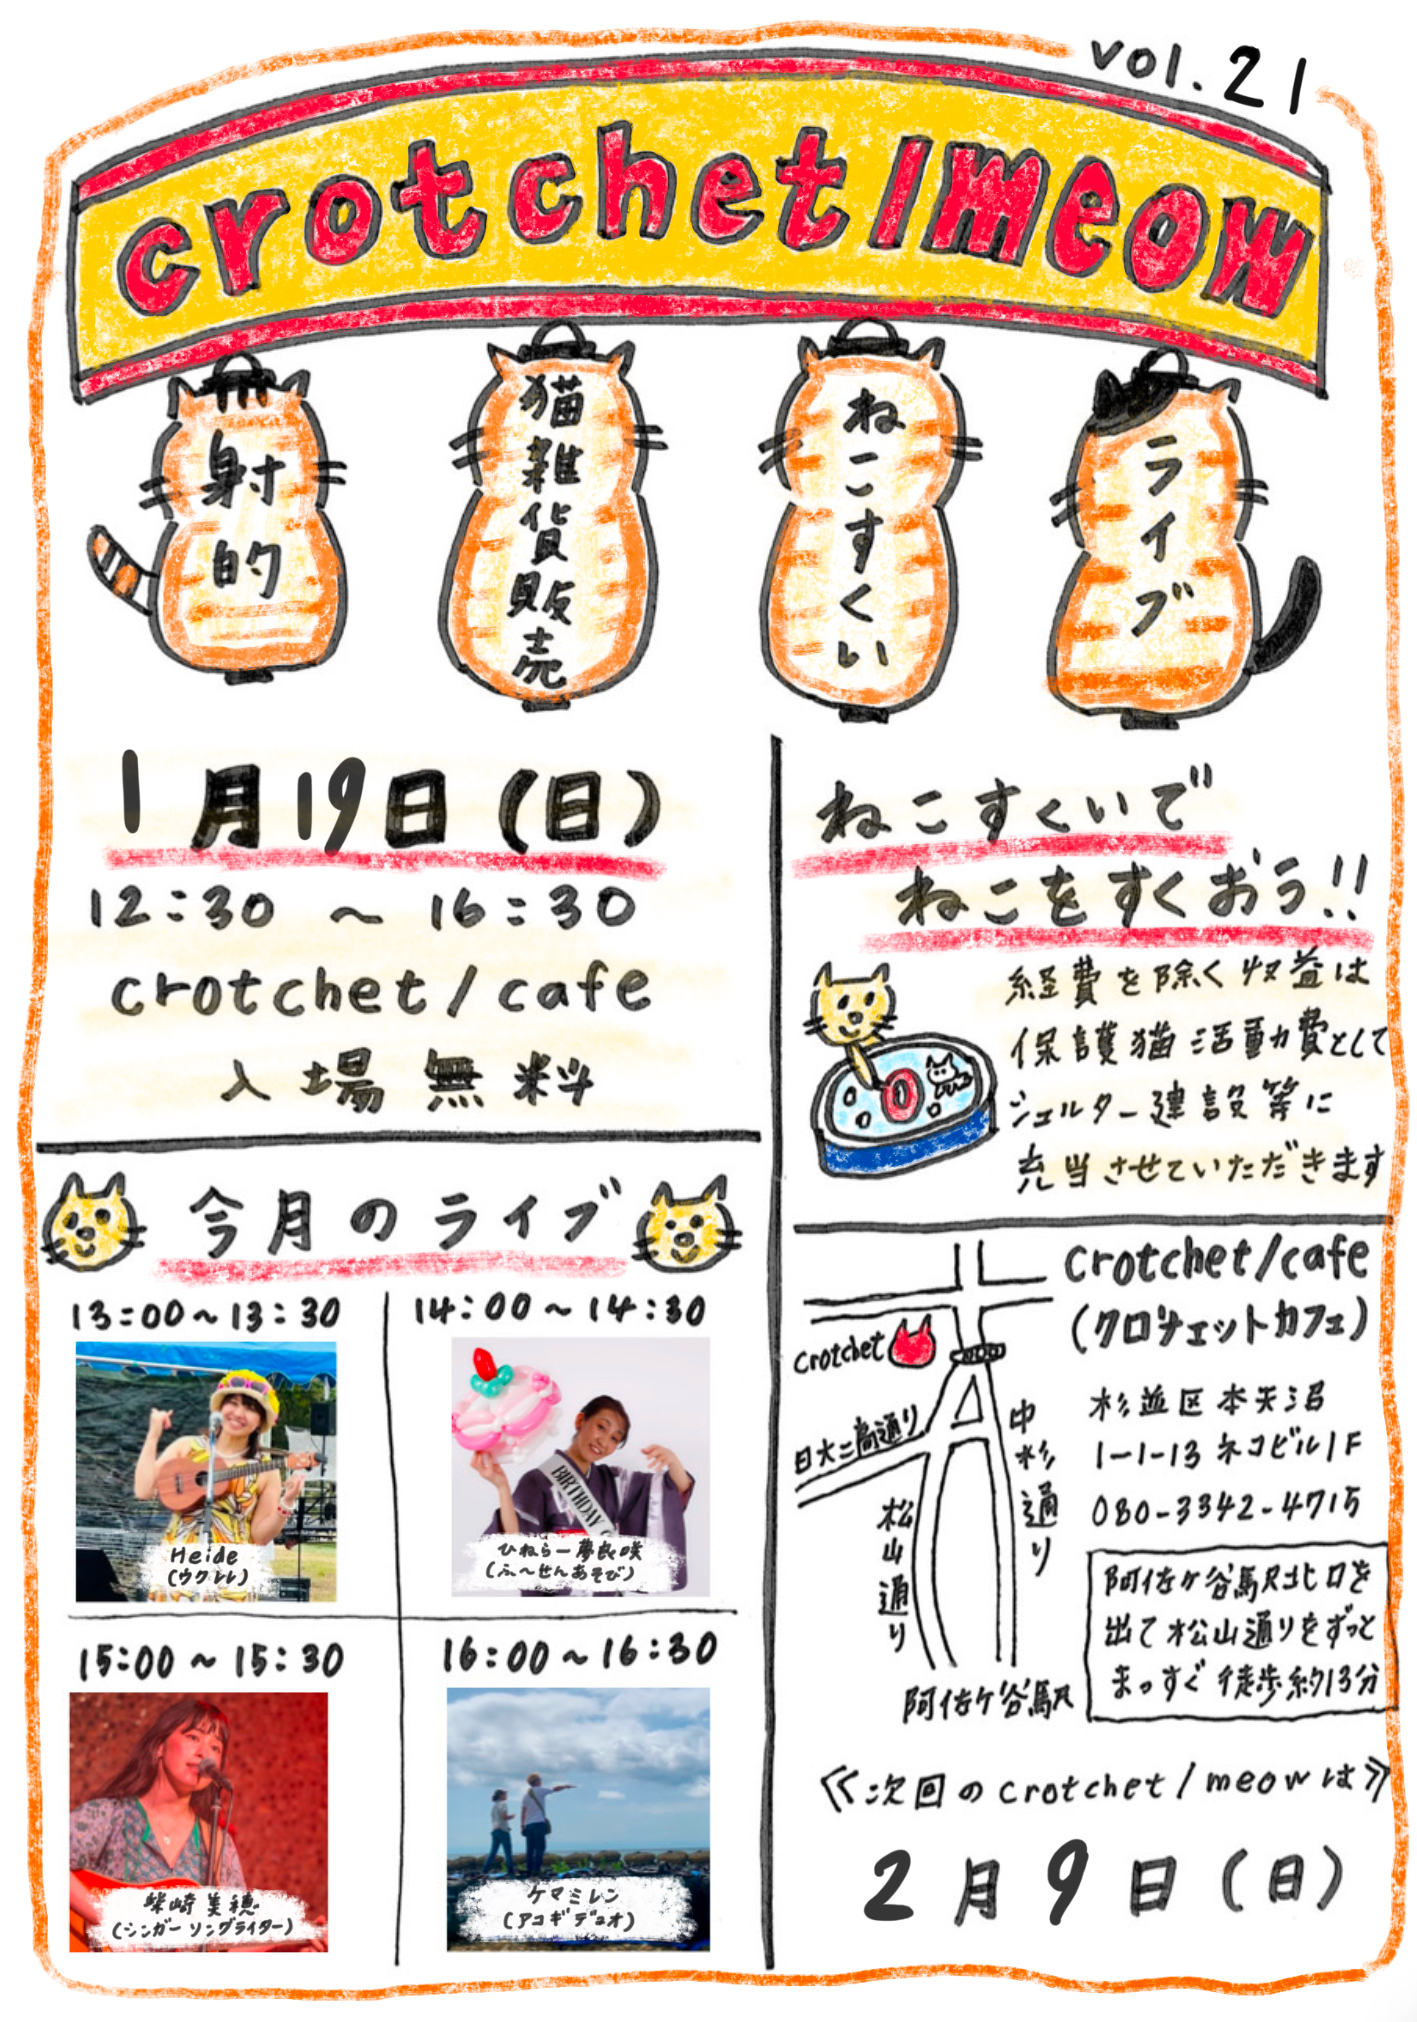 vol.21
crotchet/meow
射的
猫雑貨販売
ねこすくい
ライブ
1月19日(日)
12:30 ~ 16:30
crotchet/cafe
入場無料
ねこすくいで
ねこをすくおう!!
経費を除く収益は
保護猫活動費として
シェルター建設等に
充当させていただきます
今月のライブ
13:00~13:30
Heide
(ウクレレ)
14:00~14:30
BIRTHDAY
ひねらー夢良咲
(ふ~せんあそび)
15:00~15:30
柴崎美穂
(シンガーソングライター)
16:00~16:30
ケマミレン
(アコギデュオ)
crotchet/cafe
(クロチェットカフェ)
杉並区本天沼
1-1-13 ネコビル1F
080-3342-4715
crotchet
日大二高通り
中杉通り
松山通り
阿佐ケ谷駅
阿佐ヶ谷駅北口を
出て松山通りをずっと
まっすぐ徒歩約13分
≪次回のcrotchet/meowは≫
2月9日(日)